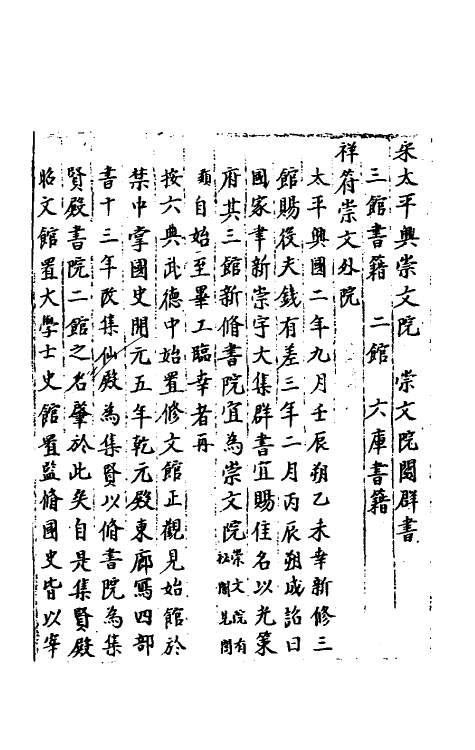 宋太平興崇文院 崇文院閱群書
三館書籍 二館 六庫書籍
祥符崇文外院
太平興國二年九月壬辰朔乙未幸新修三
館賜役夫錢有差三年二月丙辰朔成詔曰
國家聿新崇宇大集群書宜賜佳名以光策
府其三館新脩書院宜為崇文院崇文院有秘閣見閣
類自始至畢工臨幸者再
按六典武德中始置修文館正觀見始館於
禁中掌國史開元五年乾元殿東廊寫四部
書十三年改集仙殿為集賢以脩書院為集
賢殿書院二館之名肇於此矣自是集賢殿
昭文館置大學士史館置監脩國史皆以宰